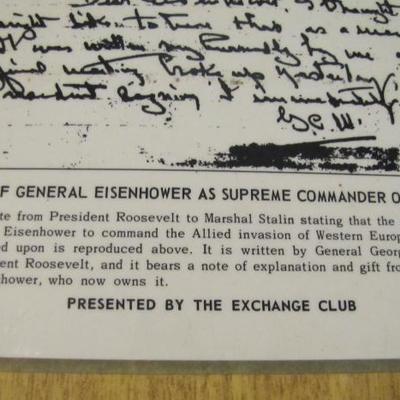 Dear Eisenhower, I thought
might like to have this as a mem
It was written very hurriedly by me
final meeting broke up yesterday
President signing it immediately
G.C.M.
F GENERAL EISENHOWER AS SUPREME COMMANDER O
te from President Roosevelt to Marshal Stalin stating that the
Eisenhower to command the Allied invasion of Western Europ
ed upon is reproduced above. It is written by General Georg
ent Roosevelt, and it bears a note of explanation and gift fro
hower, who now owns it.
PRESENTED BY THE EXCHANGE CLUB